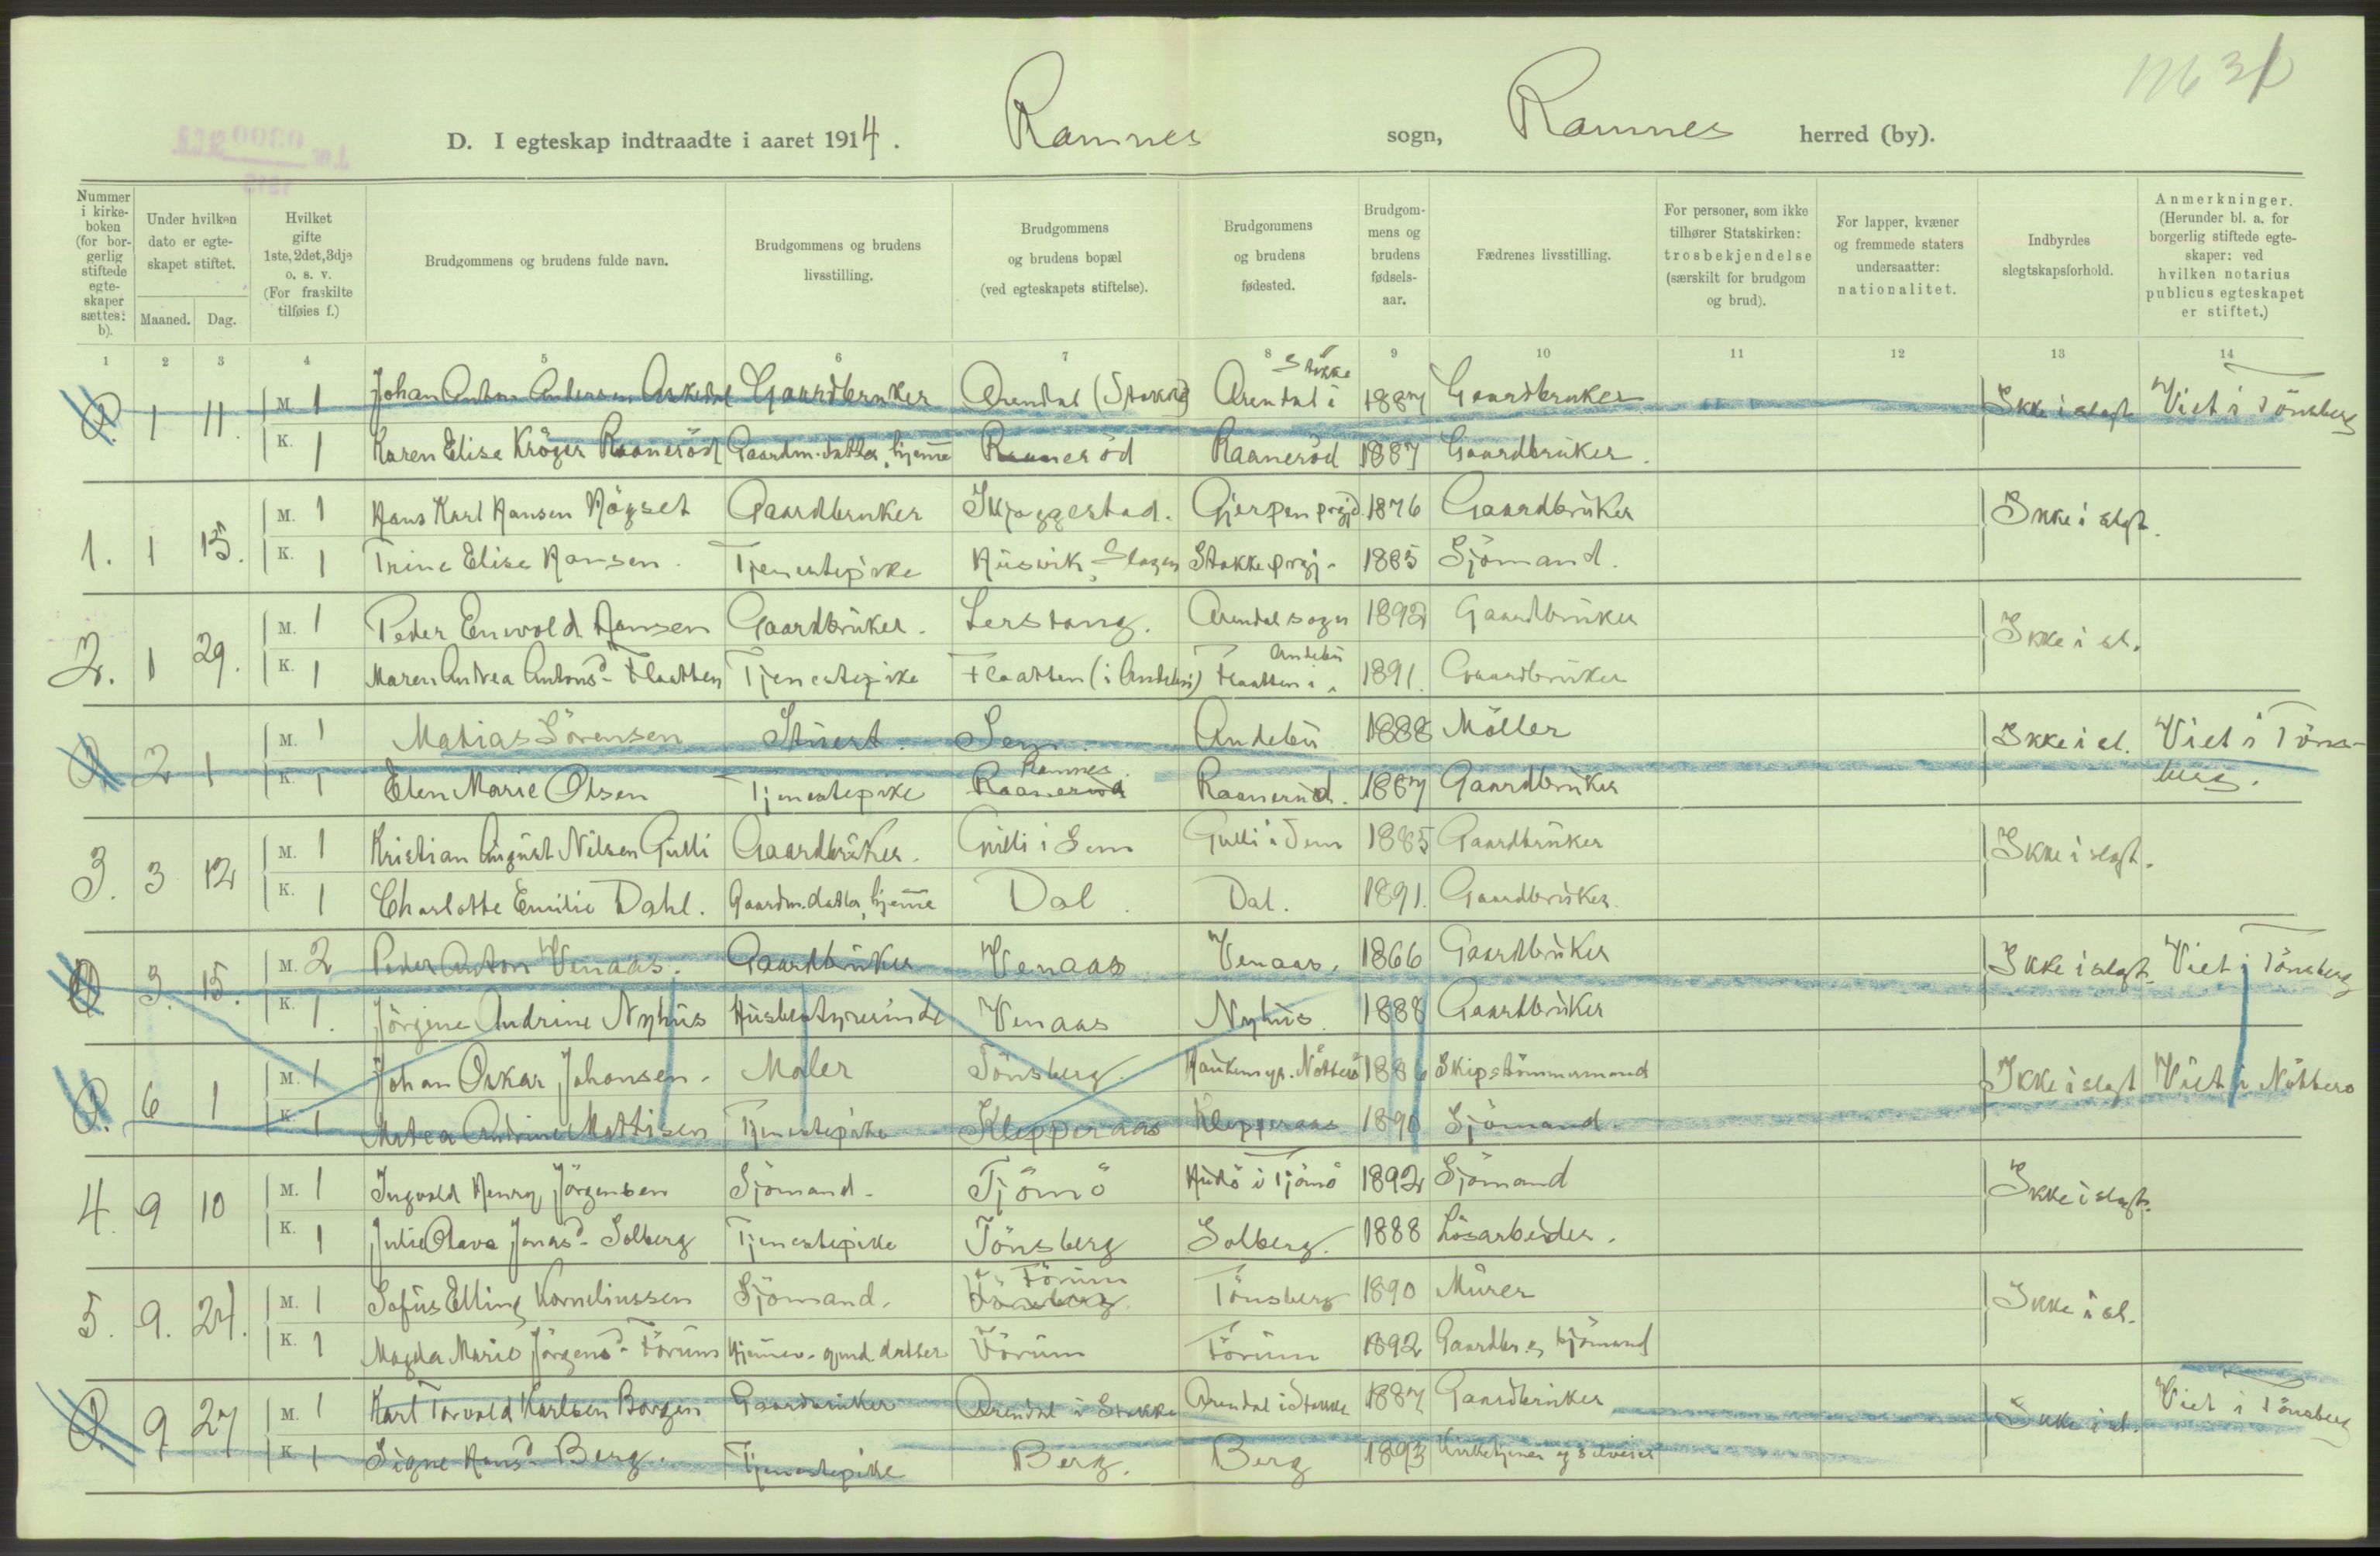 D. I egteskap indtraadte i aaret 1914. Ramnes sogn, Ramnes herred (by).
Nummer i kirke-boken (for bor-gerlig stiftede egte-skaper sættes: b).
Under hvilken dato er egte-skapet stiftet.
Maaned. Dag.
Hvilket gifte 1ste, 2det, 3dje o. s. v. (For fraskilte tilføies f.)
Brudgommens og brudens fulde navn.
Brudgommens og brudens livsstilling.
Brudgommens og brudens bopæl (ved egteskapets stiftelse).
Brudgommens og brudens fødested.
Brudgom-mens og brudens fødsels-aar.
Fædrenes livsstilling.
For personer, som ikke tilhører Statskirken: trosbekjendelse (særskilt for brudgom og brud).
For lapper, kvæner og fremmede staters undersaatter: nationalitet.
Indbyrdes slegtskapsforhold.
Anmerkninger. (Herunder bl. a. for borgerlig stiftede egte-skaper: ved hvilken notarius publicus egteskapet er stiftet.)
1 2 3 4 5 6 7 8 9 10 11 12 13 14
0. 1 11. M. 1 Johan Anton Andersen Askedal Gaardbruker Arendal (Stokke) Arendal i Stokke 1887 Gaardbruker Ikke i slegt Viet i Tönsberg
K. 1 Karen Elise Kröger Raaneröd Gaardm.datter, hjemme Raaneröd Raaneröd 1887 Gaardbruker.
1. 1 15. M. 1 Hans Karl Hansen Högset Gaardbruker Skjeggestad. Gjerpen prgjd. 1876 Gaardbruker Ikke i slegt.
K. 1 Trine Elise Hansen. Tjenestepike Husvik, Slagen Stokke prgj. 1885 Sjömand.
2. 1 29. M. 1 Peder Enevold Hansen Gaardbruker. Lerstang. Arendal sogn 1892 Gaardbruker Ikke i sl.
K. 1 Maren Andrea Antonsd. Flaatten Tjenestepike Flaatten (i Andebu) Flaatten i Andebu 1891. Gaardbruker
0. 2 1 M. 1 Matias Sörensen Stuert. Sem. Andebu 1888 Möller Ikke i sl. Viet i Töns-berg.
K. 1 Elen Marie Olsen Tjenestepike Raaneröd Ramnes Raaneröd. 1887 Gaardbruker
3. 3 12 M. 1 Kristian August Nilsen Gulli Gaardbruker. Gulli i Sem Gulli i Sem 1885 Gaardbruker Ikke i slegt.
K. 1 Charlotte Emilie Dahl. Gaardm.datter, hjemme Dal. Dal. 1891. Gaardbruker.
0 3. 15. M. 2 Peder Anton Venaas. Gaardbruker Venaas. Venaas. 1866 Gaardbruker Ikke i slegt. Viet i Tönsberg
K. 1. Jörgine Andrine Nyhus Husbestyrerinde Venaas Nyhus. 1888 Gaardbruker
0. 6 1 M. 1 Johan Oskar Johansen. Maler Tönsberg. 1886 Skipstömmermand Ikke i slegt Viet i Nötterö
K. 1 Matea Andrine Mattisen Tjenestepike Klepperaas Klepperaas 1890 Sjömand.
4. 9 10 M. 1 Ingvald Henry Jörgensen Sjömand. Tjömö Hudö i Tjömö 1892 Sjömand Ikke i slegt.
K. 1 Julie Olava Jonasd. Solberg Tjenestepike Tönsberg Solberg. 1888 Lösarbeider.
5. 9. 24. M. 1 Sofus Elling Korneliussen Sjömand. Tönsberg Förum Tönsberg 1890 Murer Ikke i sl.
K. 1 Magda Marie Jörgensd. Förum Hjemmev. gmd. datter Förum Förum 1892 Gaardbr. og sjömand
0. 9 27 M. 1 Karl Torvald Karlsen Borgen Gaardbruker Arendal i Stokke Arendal i Stokke 1887 Gaardbruker Ikke i sl. Viet i Tönsberg
K. 1 Signe Hansd. Berg. Tjenestepike Berg. Berg 1893 Kirketjener og selveier